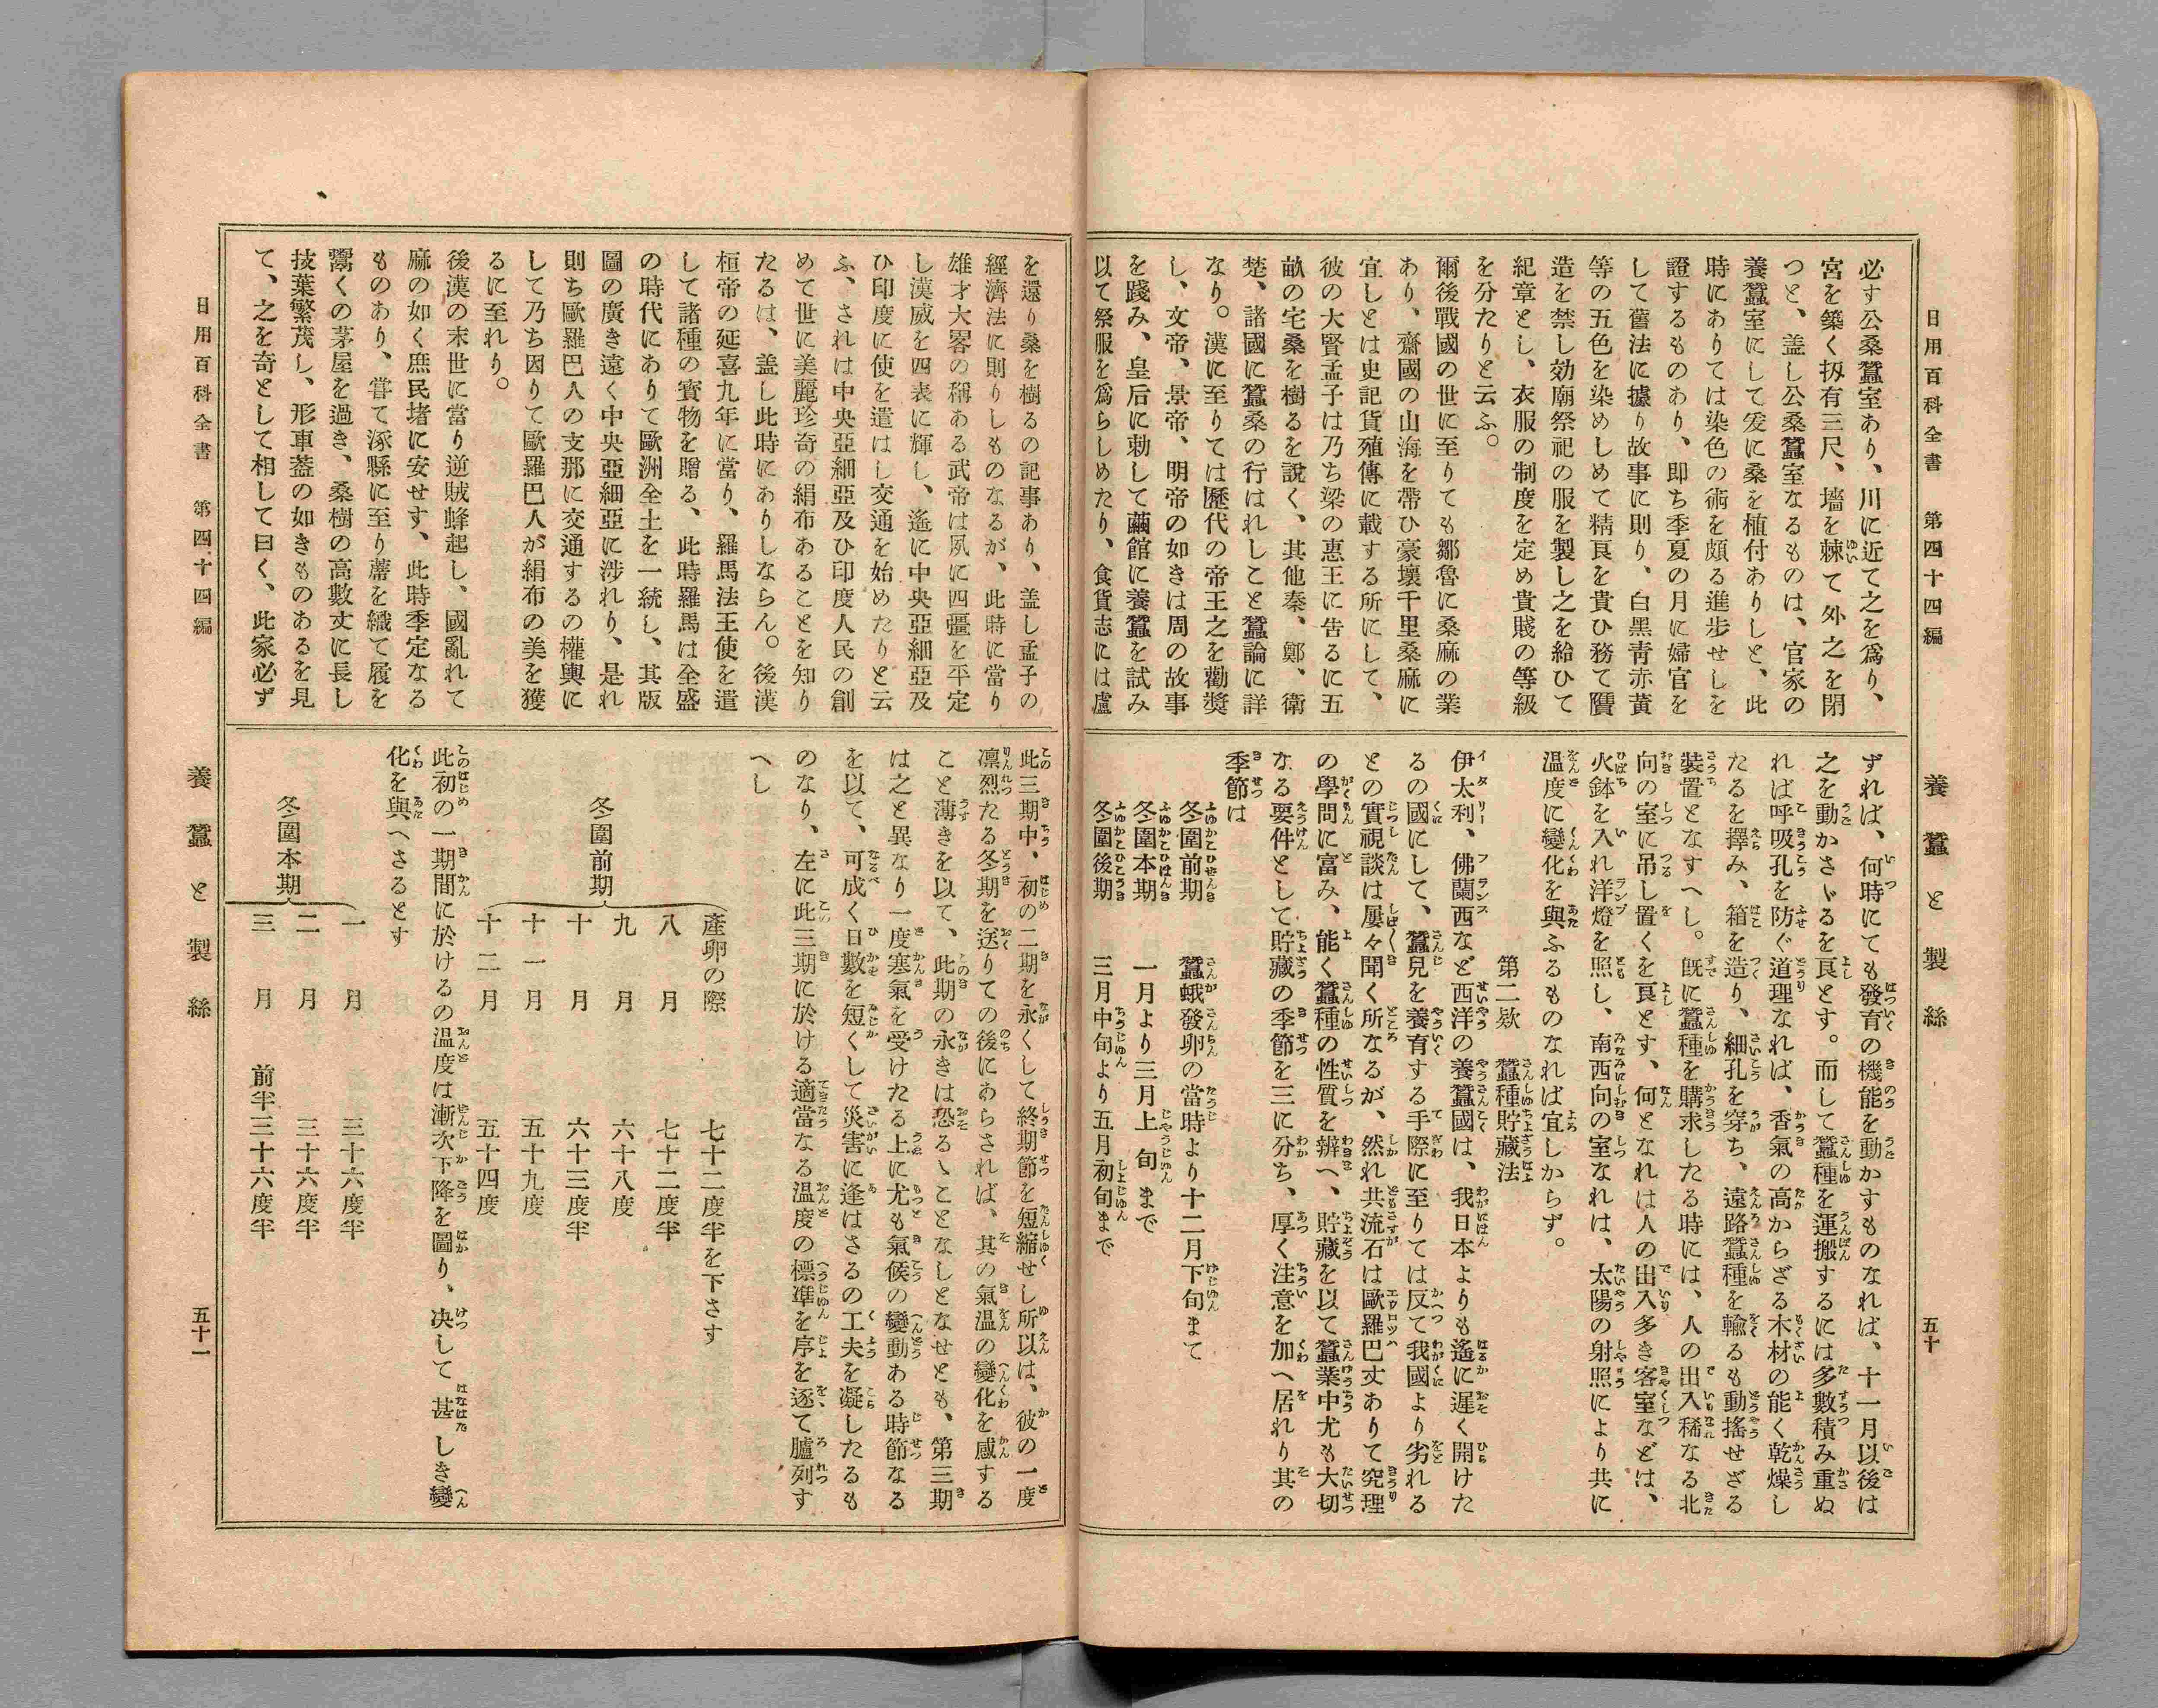 日用百科全書　第四十四編
養蠶と製絲
五十
必す公桑蠶室あり、川に近て之を爲り、
宮を築く扨有三尺、墻を棘て外之を閉
つと、盖し公桑蠶室なるものは、官家の
養蠶室にして爰に桑を植付ありしと、此
時にありては染色の術を頗る進步せしを
證するものあり、即ち季夏の月に婦官を
して舊法に據り故事に則り、白黑靑赤黃
等の五色を染めしめて精良を貴ひ務て贋
造を禁し効廟祭祀の服を製し之を給ひて
紀章とし、衣服の制度を定め貴賤の等級
を分たりと云ふ。
爾後戰國の世に至りても鄒魯に桑麻の業
あり、齋國の山海を帶ひ豪壤千里桑麻に
宜しとは史記貨殖傳に載する所にして、
彼の大賢孟子は乃ち梁の惠王に告るに五
畝の宅桑を樹るを說く、其他秦、鄭、衛
楚、諸國に蠶桑の行はれしこと蠶論に詳
なり。漢に至りては歷代の帝王之を勸奬
し、文帝、景帝、明帝の如きは周の故事
を踐み、皇后に勅して繭館に養蠶を試み
以て祭服を爲らしめたり、食貨志には廬
ずれば、何時にても發育の機能を動かすものなれば、十一月以後は
之を動かさゞるを良とす。而して蠶種を運搬するには多數積み重ぬ
れば呼吸孔を防ぐ道理なれば、香氣の高からざる木材の能く乾燥し
たるを擇み、箱を造り、細孔を穿ち、遠路蠶種を輸るも動搖せざる
裝置となすへし。旣に蠶種を購求したる時には、人の出入稀なる北
向の室に吊し置くを良とす、何となれは人の出入多き客室などは、
火鉢を入れ洋燈を照し、南西向の室なれは、太陽の射照により共に
温度に變化を與ふるものなれば宜しからず。
第二欵　蠶種貯藏法
伊太利、佛蘭西など西洋の養蠶國は、我日本よりも遙に遲く開けた
るの國にして、蠶兒を養育する手際に至りては反て我國より劣れる
との實視談は屢々聞く所なるが、然れ共流石は歐羅巴丈ありて究理
の學問に富み、能く蠶種の性質を辨へ、貯藏を以て蠶業中尤も大切
なる要件として貯藏の季節を三に分ち、厚く注意を加へ居れり其の
季節は
冬圍前期　蠶蛾發卵の當時より十二月下旬まて
冬圍本期　一月より三月上旬まで
冬圍後期　三月中旬より五月初旬まで
を還り桑を樹るの記事あり、盖し孟子の
經濟法に則りしものなるが、此時に當り
雄才大畧の稱ある武帝は夙に四疆を平定
し漢威を四表に輝し、遙に中央亞細亞及
ひ印度に使を遣はし交通を始めたりと云
ふ、されは中央亞細亞及ひ印度人民の創
めて世に美麗珍奇の絹布あることを知り
たるは、盖し此時にありしならん。後漢
桓帝の延喜九年に當り、羅馬法王使を遣
して諸種の寳物を贈る、此時羅馬は全盛
の時代にありて歐洲全土を一統し、其版
圖の廣き遠く中央亞細亞に涉れり、是れ
則ち歐羅巴人の支那に交通するの權輿に
して乃ち因りて歐羅巴人が絹布の美を獲
るに至れり。
後漢の末世に當り逆賊蜂起し、國亂れて
麻の如く庶民堵に安せす、此時季定なる
ものあり、甞て涿縣に至り蓆を織て履を
鬻くの茅屋を過き、桑樹の高數丈に長し
技葉繁茂し、形車葢の如きものあるを見
て、之を奇として相して曰く、此家必ず
此三期中、初の二期を永くして終期節を短縮せし所以は、彼の一度
凛烈たる冬期を送りての後にあらされば、其の氣温の變化を感する
こと薄きを以て、此期の永きは恐るゝことなしとなせとも、第三期
は之と異なり一度寒氣を受けたる上に尤も氣候の變動ある時節なる
を以て、可成く日數を短くして災害に逢はさるの工夫を凝したるも
のなり、左に此三期に於ける適當なる温度の標準を序を逐て臚列す
へし
冬圍前期
產卵の際　七十二度半を下さす
八月　七十二度半
九月　六十八度
十月　六十三度半
十一月　五十九度
十二月　五十四度
此初の一期間に於けるの温度は漸次下降を圖り、决して甚しき變
化を與へさるとす
冬圍本期
一月　三十六度半
二月　三十六度半
三月　前半三十六度半
日用百科全書　第四十四編
養蠶と製絲
五十一